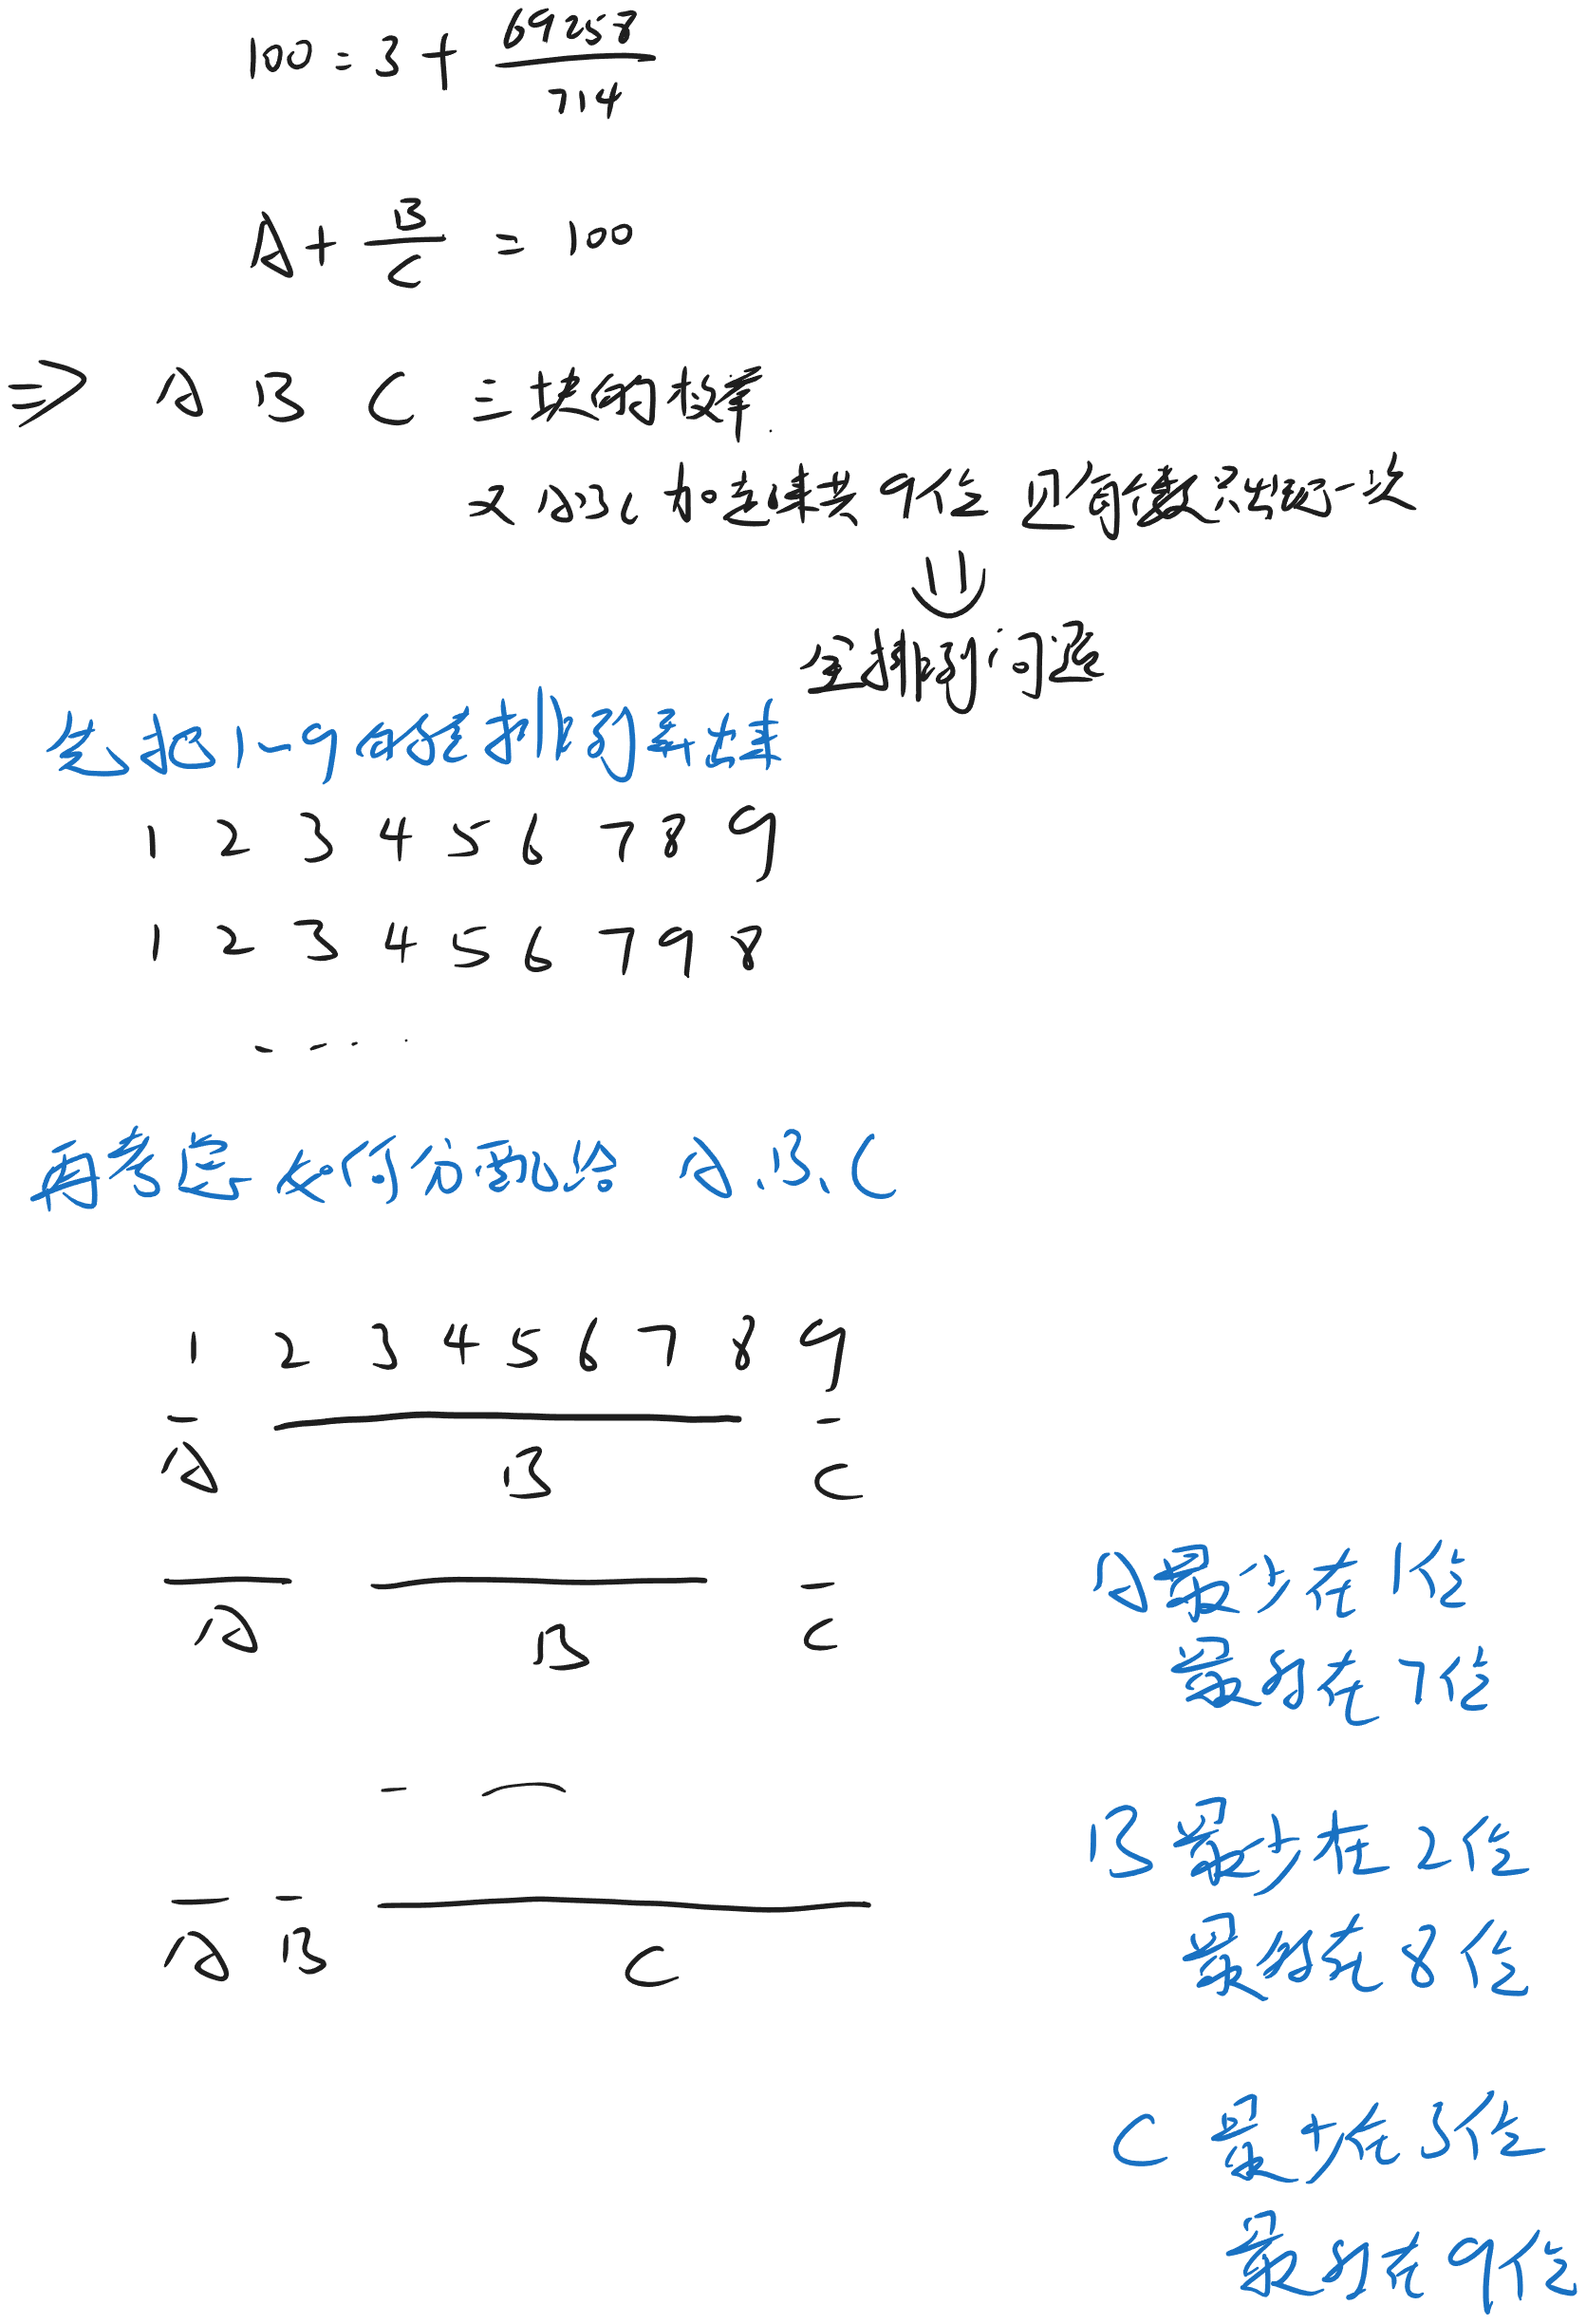 100 = 3 + 69258/714
A + B/C = 100
⇒ A B C 三块的枚举.
又 A B C 加起来共 9位 且每位数只出现了一次
⇓
全排列问题
先把1~9的全排列弄出来
1 2 3 4 5 6 7 8 9
1 2 3 4 5 6 7 9 8
- - · ·
再考虑如何分配给 A.B.C
1 2 3 4 5 6 7 8 9
A B C
A B C
A最少在1位
最多在7位
B最少在2位
A B C
最多在8位
C最少在3位
最多在9位